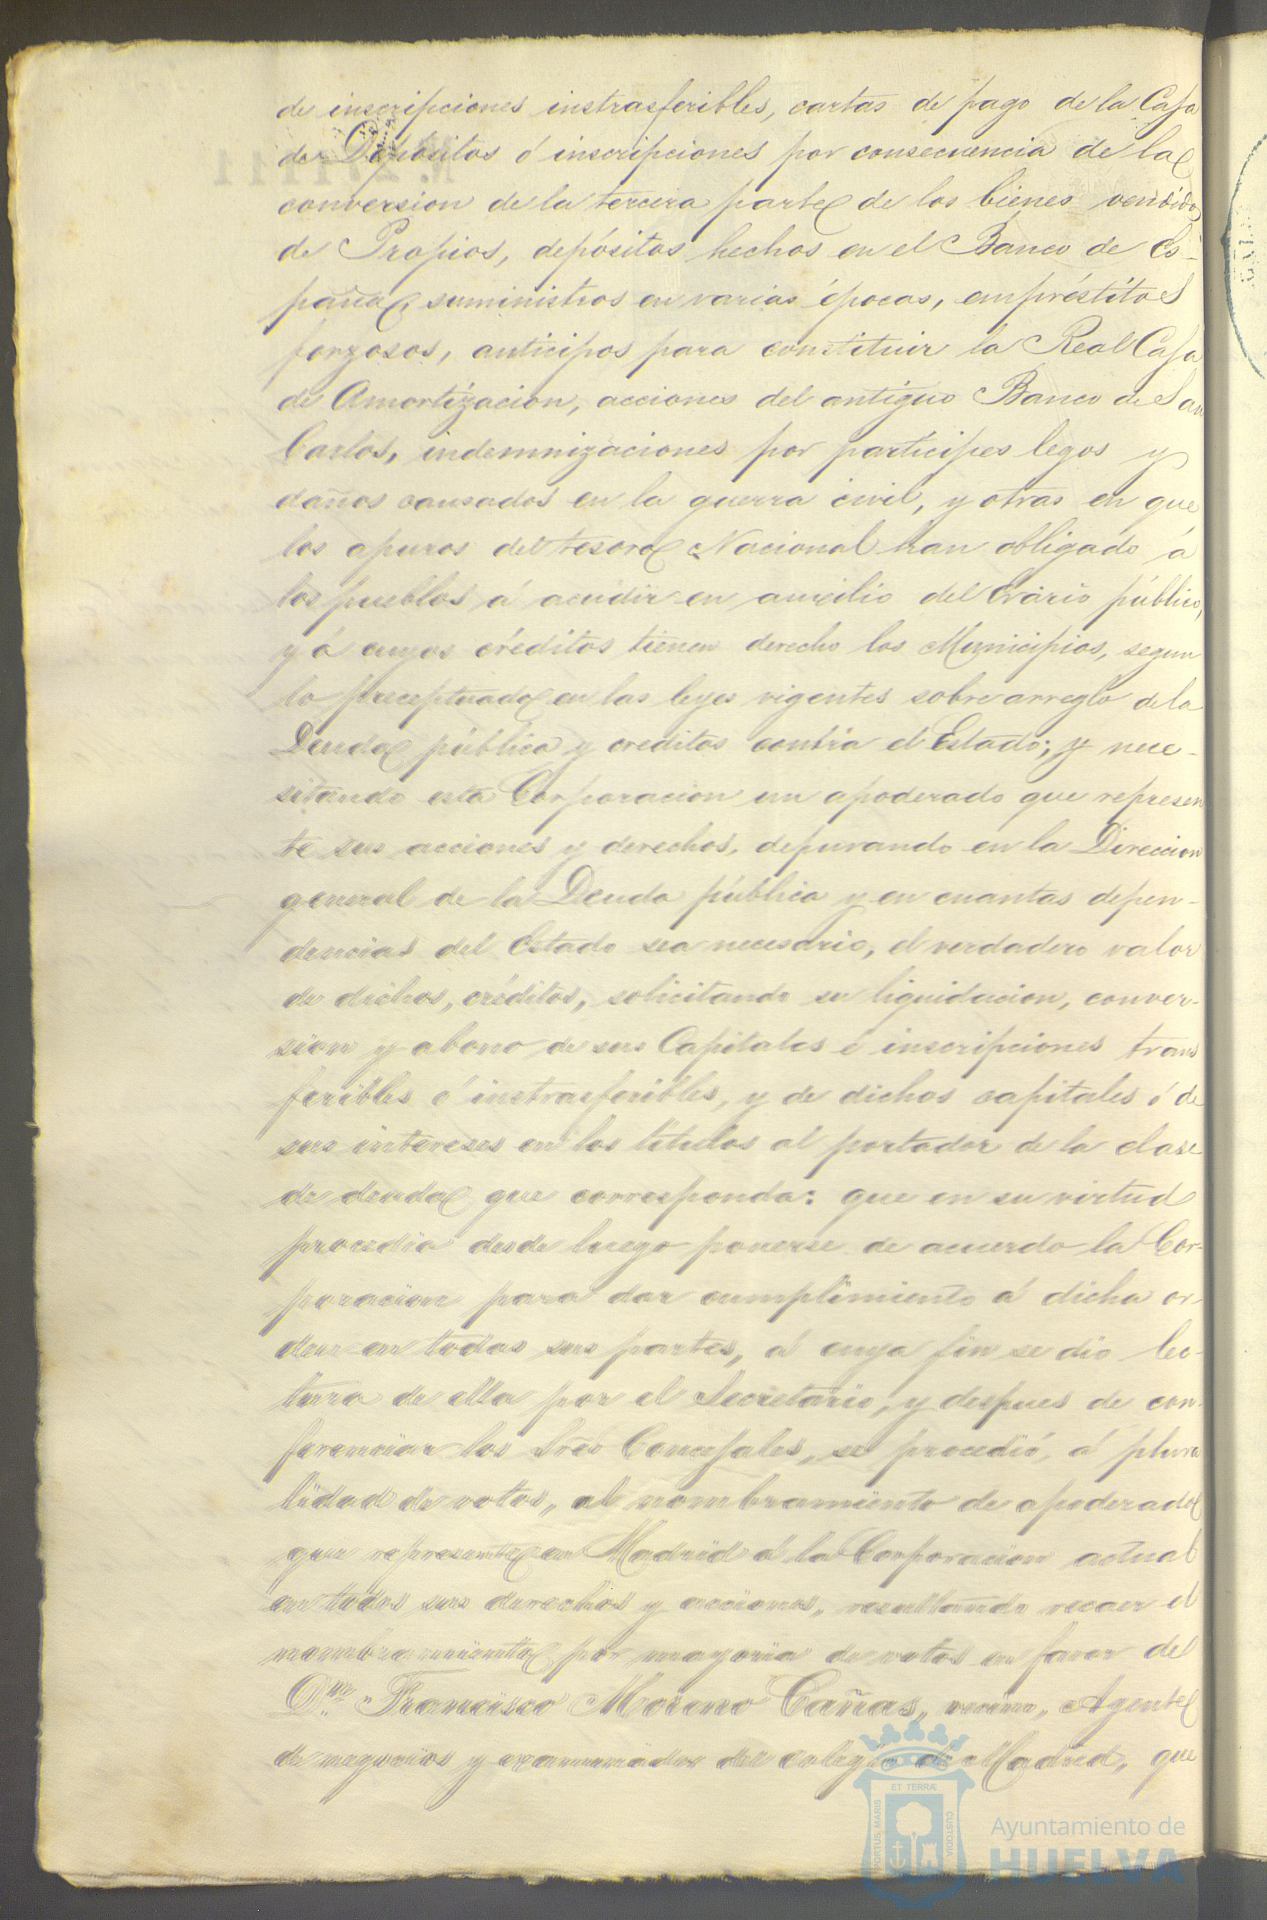 de inscripciones instrasferibles, cartas de pago de la Caja
de Depósitos ó inscripciones por consecuencia de la
conversion de la tercera parte de los bienes vendidos
de Propios, depósitos hechos en el Banco de Es-
paña, suministros en varias épocas, empréstitos
forzosos, anticipos para constituir la Real Caja
de Amortizacion, acciones del antiguo Banco de San
Carlos, indemnizaciones por partícipes legos y
daños causados en la guerra civil, y otras en que
los apuros del tesoro Nacional han obligado á
los pueblos á acudir en auxilio del Erario público,
y á cuyos créditos tienen derecho los Municipios, segun
lo preceptuado en las leyes vigentes sobre arreglo de la
Deuda pública y creditos contra el Estado; y nece-
sitando esta Corporacion un apoderado que represen
te sus acciones y derechos, depurando en la Direccion
general de la Deuda pública y en cuantas depen-
dencias del Estado sea necesario, el verdadero valor
de dichos, créditos, solicitando su liquidacion, conver-
sion y abono de sus Capitales é inscripciones trans
feribles é instrasferibles, y de dichos capitales ó de
sus intereses en los títulos al portador de la clase
de deuda que corresponda: que en su virtud
procedia desde luego ponerse de acuerdo la Cor-
poracion para dar cumplimiento á dicha or-
den en todas sus partes, á cuyo fin se dió lec-
tura de ella por el Secretario, y despues de con-
ferenciar los Sres Concejales, se procedió, á plura
lidad de votos, al nombramiento de apoderado
que represente en Madrid á la Corporacion actual
en todos sus derechos y acciones, resultando recaer el
nombramiento por mayoria de votos en favor del
Dn. Francisco Moreno Cañas, vecino, Agente
de negocios y examinador del colegio de Madrid, que
PORTUS MARIS
ET TERRÆ
CUSTODIA
Ayuntamiento de
HUELVA